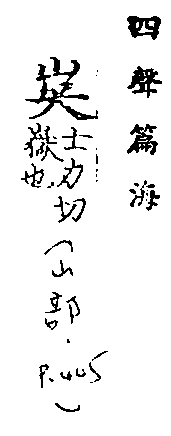 四聲篇海
士力切
嶽也
(山部.
P.445)